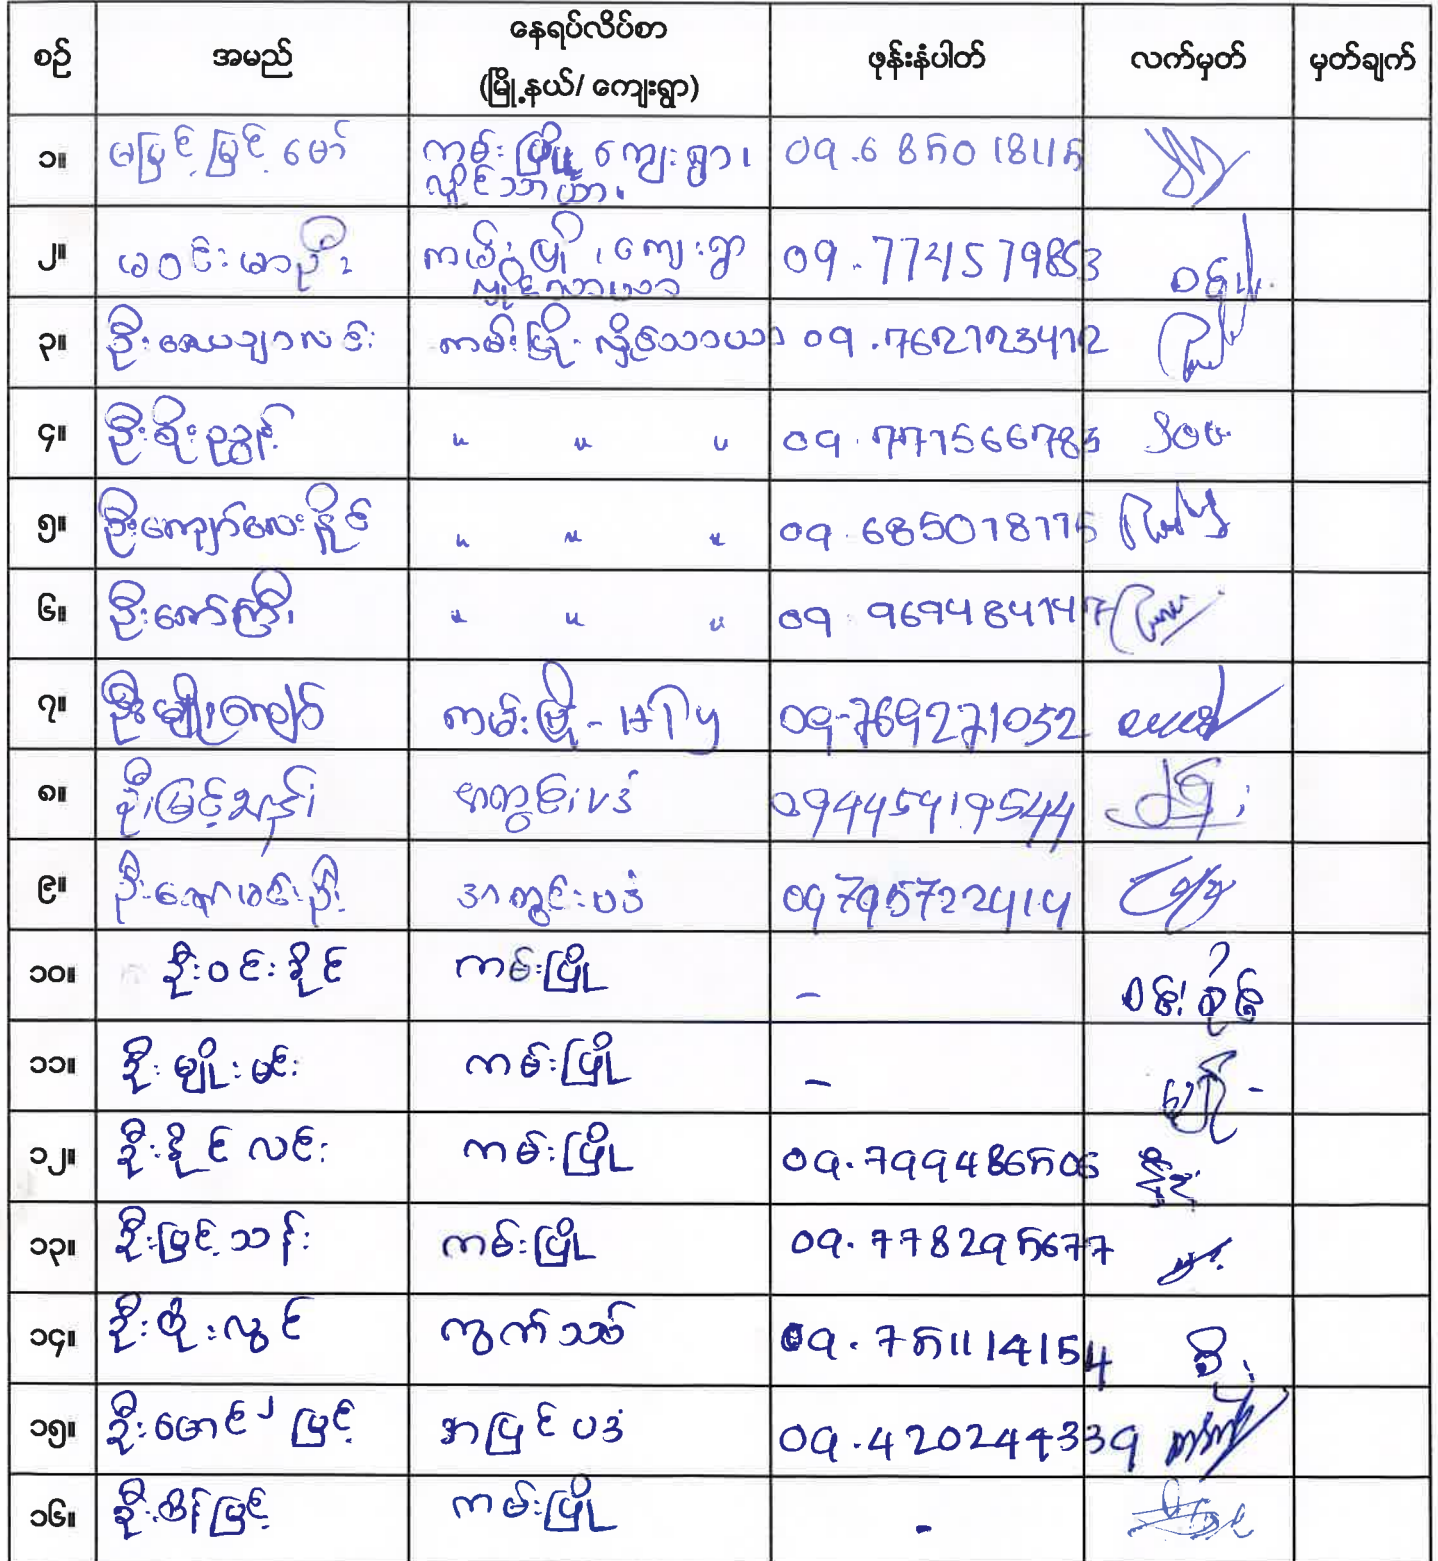 စဉ် အမည် နေရပ်လိပ်စာ ဖုန်းနံပါတ် လက်မှတ် မှတ်ချက်
(မြို့နယ်/ ကျေးရွာ)
၁။ မမြင့်မြင့်မော် ကမ်းပြို ကျေးရွာ၊ 09.685018115
၂။ မဝင်းမာဦး ကမ်းပြို ၊ ကျေးရွာ 09.774579853
၃။ ဦးဇေယျာလင်း ကမ်းပြို လှိုင်သာယာ 09.762123412
၄။ ဦးစိုးညွန့် " " " 09.771566783
၅။ ဦးကျော်လေးနိုင် " " " 09.685018115
၆။ ဦးအော်ကြီး " " " 09.969484147
၇။ ဦးမျိုးကျော် ကမ်းပြို - 09-769271052
၈။ ဦးမြင့်သန်း အတွင်းပဒံ 09445919544
၉။ အတွင်းပဒံ 09795722414
၁၀။ ဦးဝင်းခိုင် ကမ်းပြို - ဝင်းခိုင်
၁၁။ ဦးမျိုးမင်း ကမ်းပြို -
၁၂။ ဦးနိုင်လင်း ကမ်းပြို 09.799486506
၁၃။ ဦးမြင့်သန်း ကမ်းပြို 09.778295677
၁၄။ ဦးစိုးလွင် ကွက်သစ် 09.751114154
၁၅။ ဦးမောင်၂မြင့် အပြင်ပဒံ 09.420244339
၁၆။ ဦးစိန်မြင့် ကမ်းပြို -